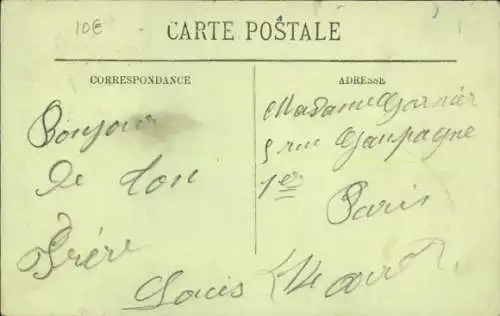 10€
CARTE POSTALE
CORRESPONDANCE
Bonjour
de ton
Frère
Louis
ADRESSE
Madame Garnier
5 rue
1er
Paris